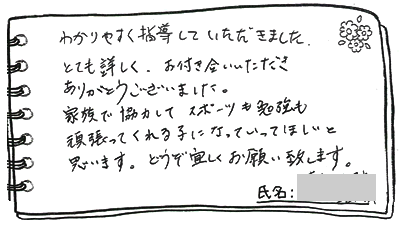 わかりやすく指導していただきました。
とても詳しく、お付き合いいただき
ありがとうございました。
家族で協力して スポーツも勉強も
頑張ってくれる子になっていってほしいと
思います。どうぞ宜しくお願い致します。
氏名: